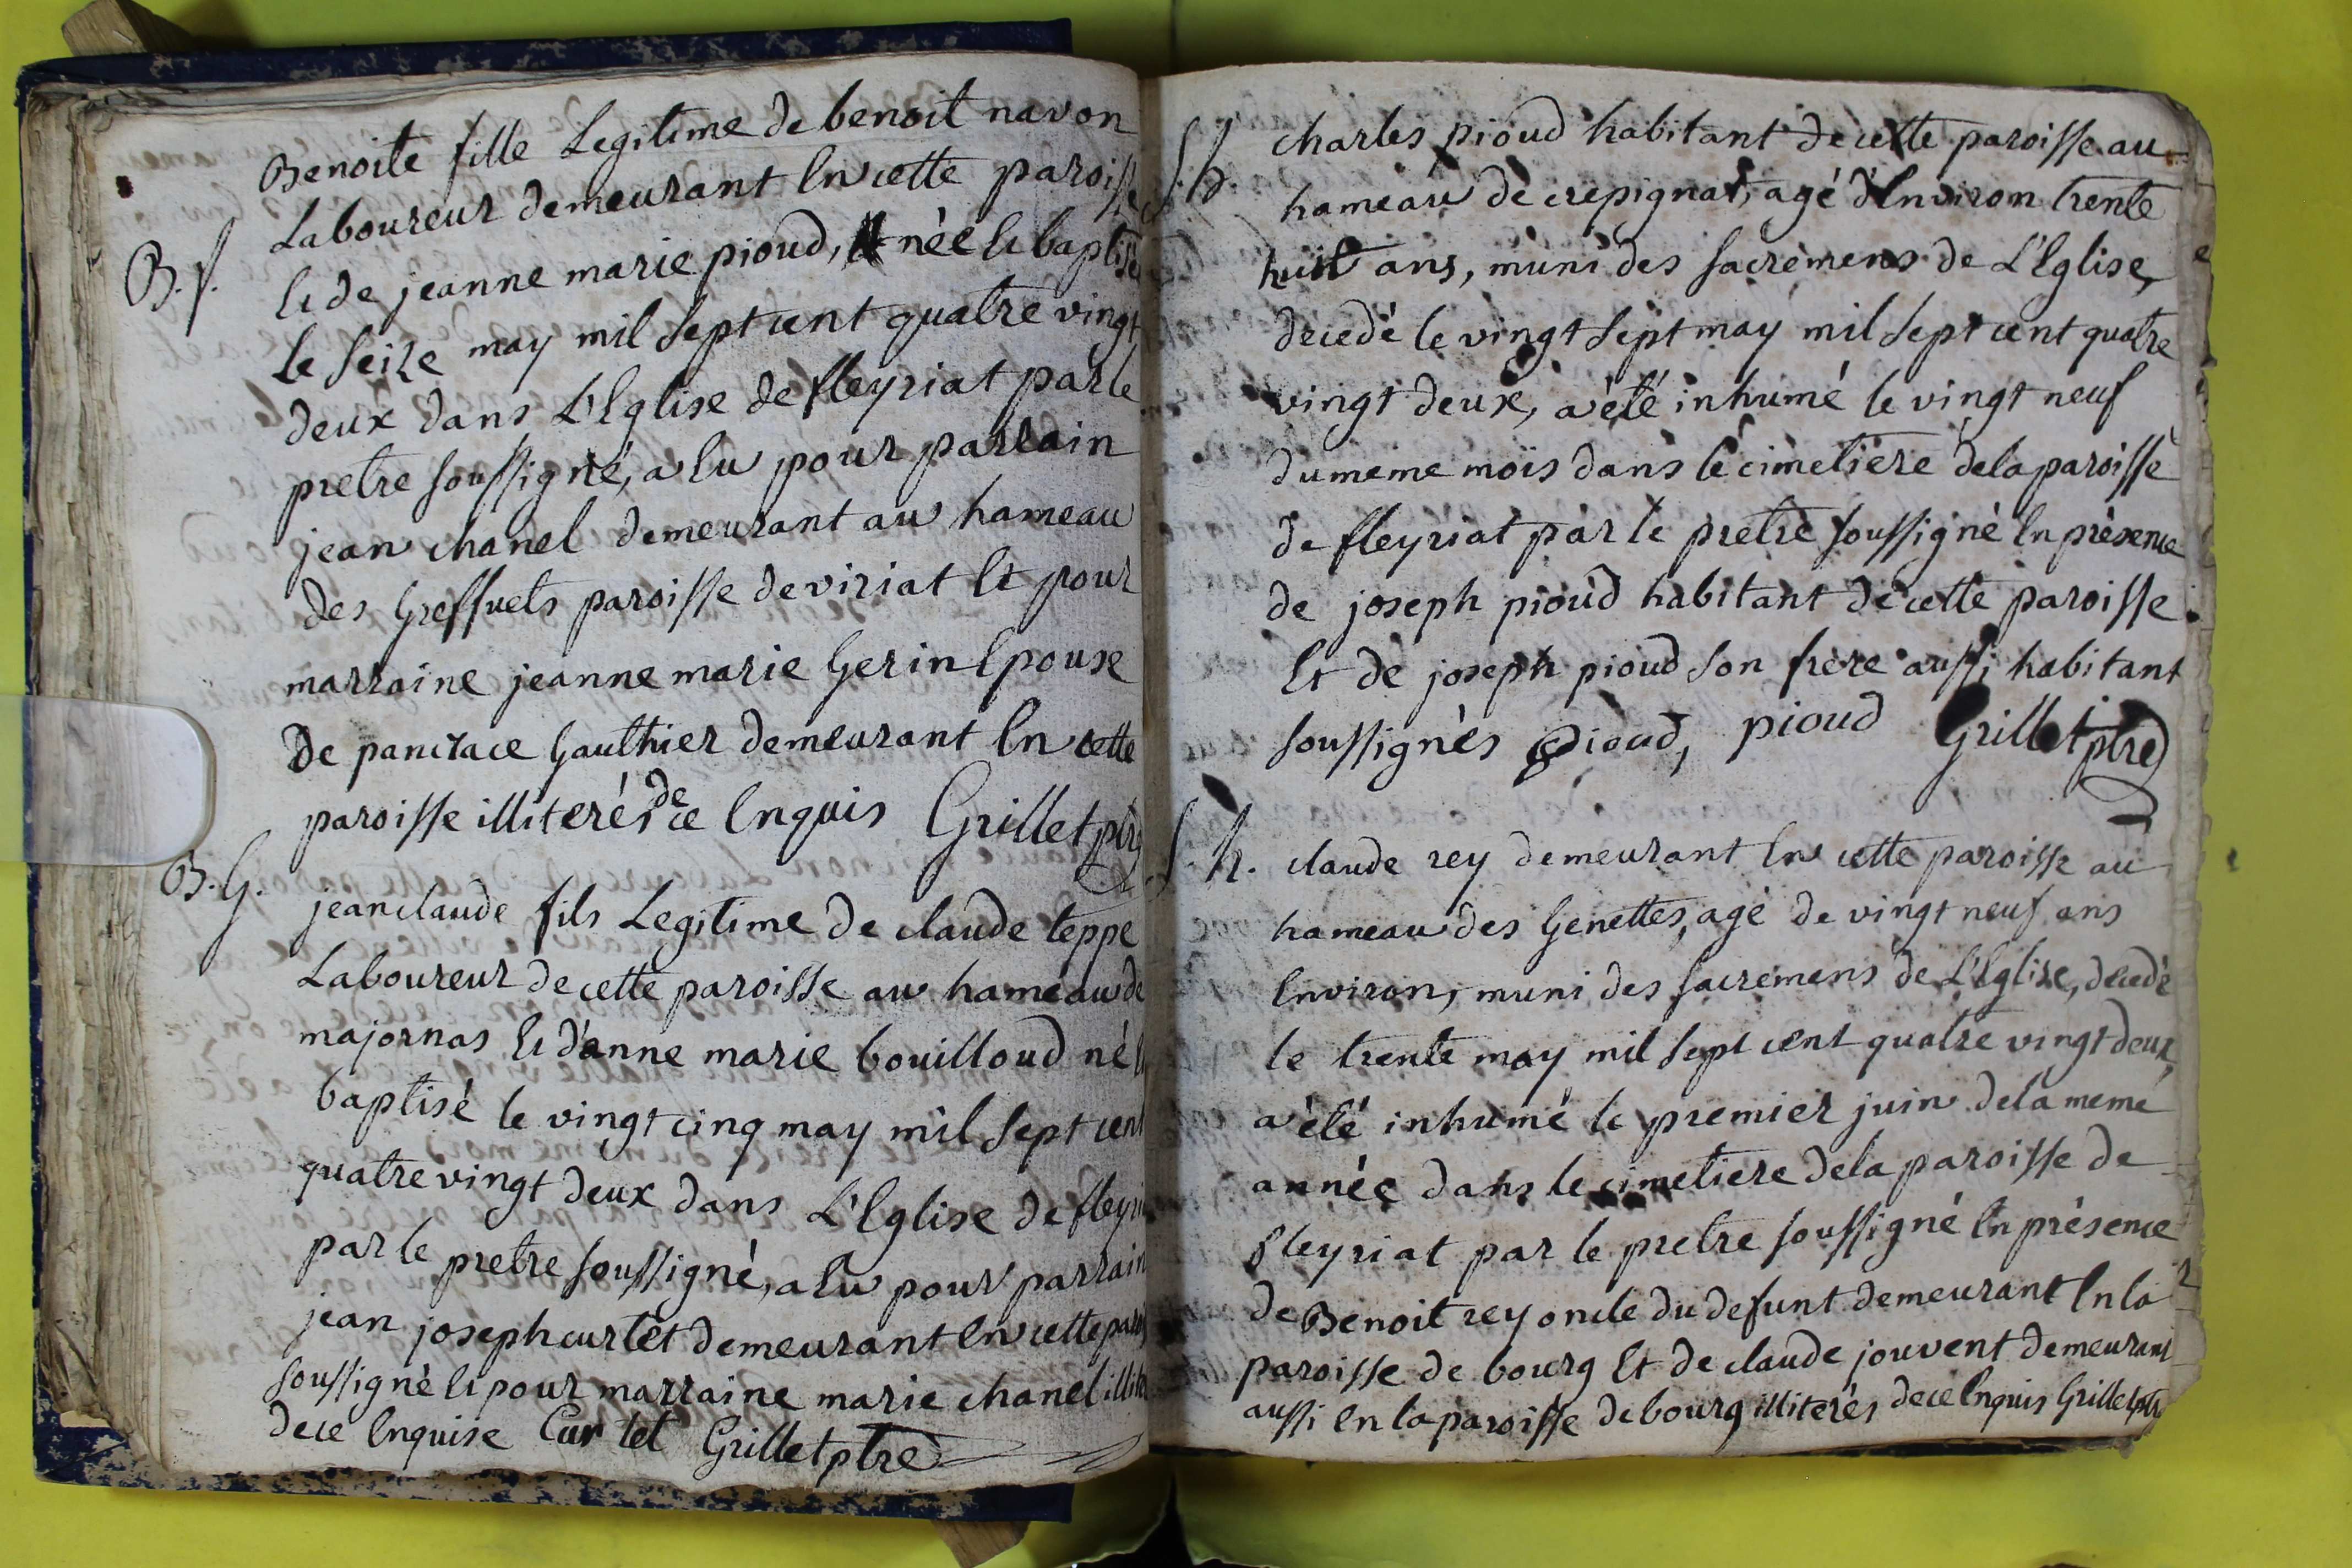 Benoite fille Legitime de benoit navon
B.f. Laboureur demeurant En cette paroisse
Et de jeanne marie pioud, née Et baptisée
le seize may mil sept cent quatre vingt
deux dans L'Eglise de fleyriat par le
pretre soussigné, a Eu pour parrain
jean chanel demeurant au hameau
des Greffuets paroisse de viriat Et pour
marraine jeanne marie Gerin Epouse
De pancrace Gauthier demeurant En cette
paroisse illiterés de ce Enquis Grillet ptre
B.G. jean claude fils Legitime de claude teppe
Laboureur de cette paroisse au hameau de
majornas Et d'anne marie bouilloud né Et
baptisé le vingt cinq may mil sept cent
quatre vingt deux dans L'Eglise de fleyri
par le pretre soussigné, a Eu pour parrain
jean joseph curtet demeurant En cette paroi
soussigné Et pour marraine marie chanel illite
de ce Enquise Curtet Grillet ptre
S.h. charles pioud habitant de cette paroisse au
hameau de crepignat, agé d'Environ trente
huit ans, muni des sacremens de L'Eglise,
decedé le vingt sept may mil sept cent quatre
vingt deux, a été inhumé le vingt neuf
du meme mois dans le cimetiere de la paroisse
de fleyriat par le pretre soussigné En présence
de joseph pioud habitant de cette paroisse
Et de joseph pioud son frere aussi habitant
soussignés pioud, pioud Grillet ptre
S.h. claude rey demeurant En cette paroisse au
hameau des Genettes, agé de vingt neuf ans
Environ, muni des sacremens de L'Eglise, decedé
le trente may mil sept cent quatre vingt deux,
a été inhumé le premier juin de la meme
année dans le cimetiere de la paroisse de
fleyriat par le pretre soussigné En présence
de Benoit rey oncle du defunt demeurant En la
paroisse de bourg Et de claude jouvent demeurant
aussi En la paroisse de bourg illiterés de ce Enquis Grillet ptre